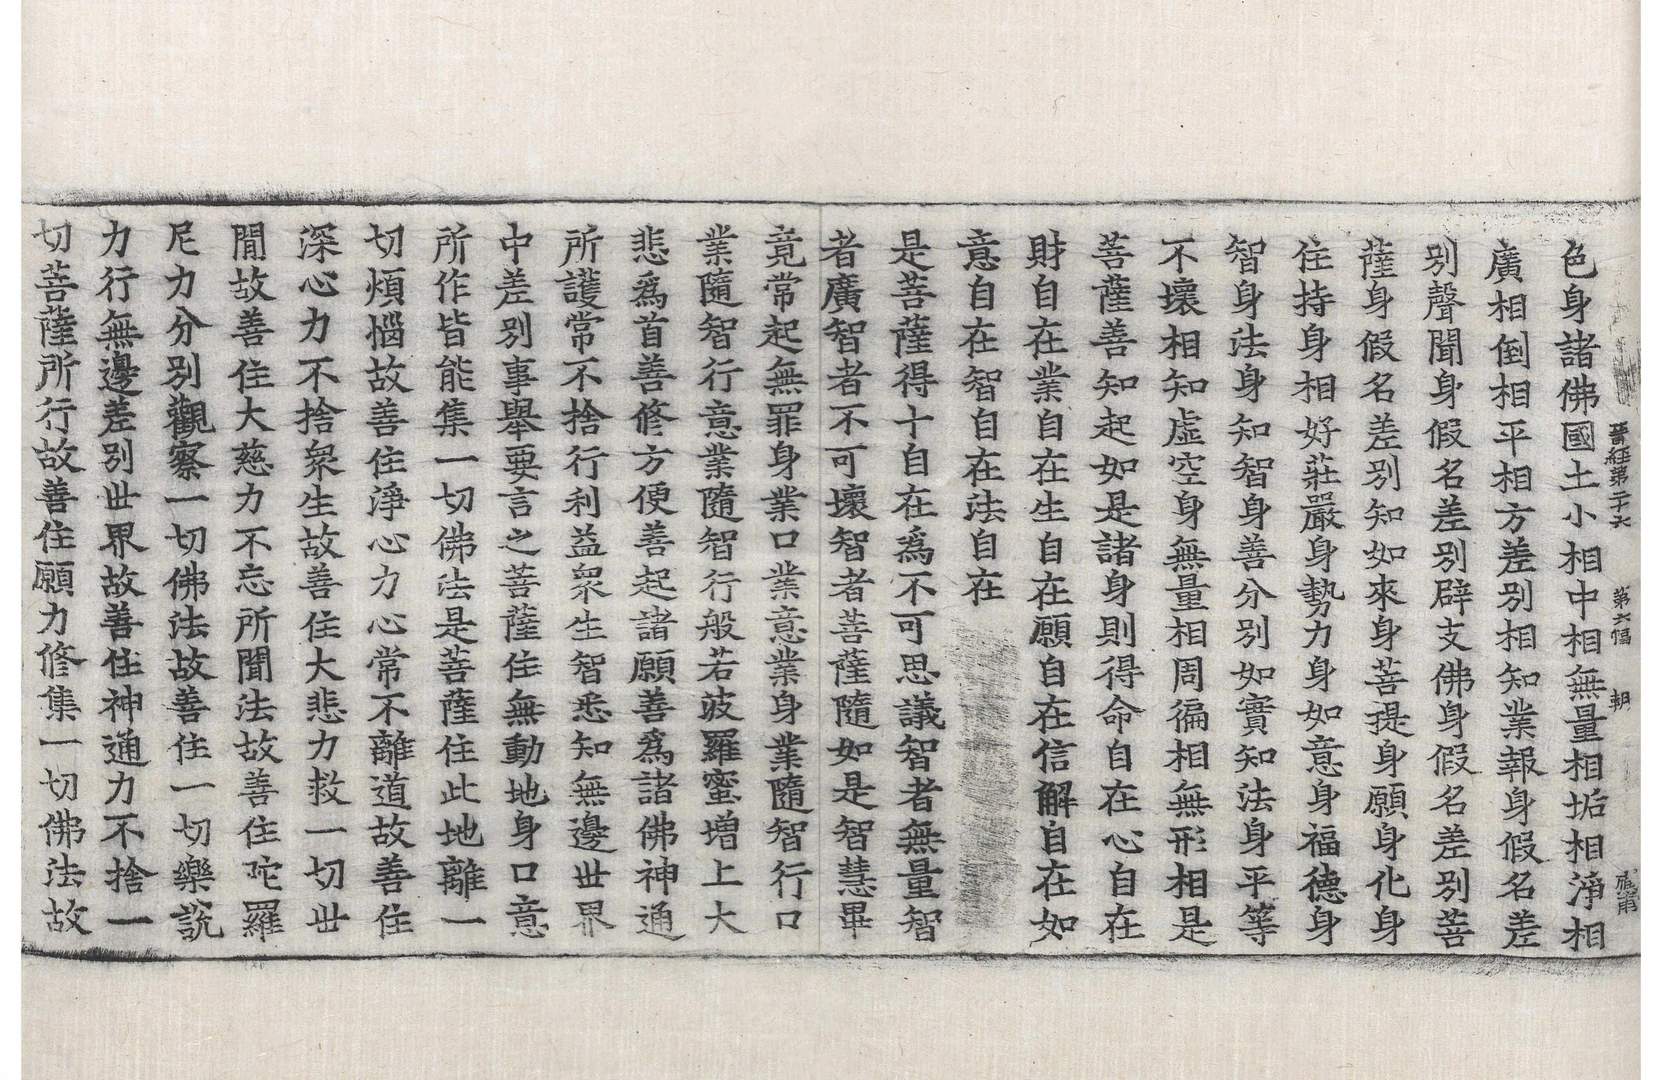 晉經第二十六　第六幅　朝
色身諸佛國土小相中相無量相垢相淨相
廣相倒相平相方差別相知業報身假名差
別聲聞身假名差別辟支佛身假名差別菩
薩身假名差別知如來身菩提身願身化身
住持身相好莊嚴身勢力身如意身福德身
智身法身知智身善分別如實知法身平等
不壞相知虛空身無量相周徧相無形相是
菩薩善知起如是諸身則得命自在心自在
財自在業自在生自在願自在信解自在如
意自在智自在法自在
是菩薩得十自在爲不可思議智者無量智
者廣智者不可壞智者菩薩隨如是智慧畢
竟常起無罪身業口業意業身業隨智行口
業隨智行意業隨智行般若波羅蜜增上大
悲爲首善修方便善起諸願善爲諸佛神通
所護常不捨行利益衆生智悉知無邊世界
中差別事舉要言之菩薩住無動地身口意
所作皆能集一切佛法是菩薩住此地離一
切煩惱故善住淨心力心常不離道故善住
深心力不捨衆生故善住大悲力救一切世
間故善住大慈力不忘所聞法故善住陀羅
尼力分別觀察一切佛法故善住一切樂說
力行無邊差別世界故善住神通力不捨一
切菩薩所行故善住願力修集一切佛法故